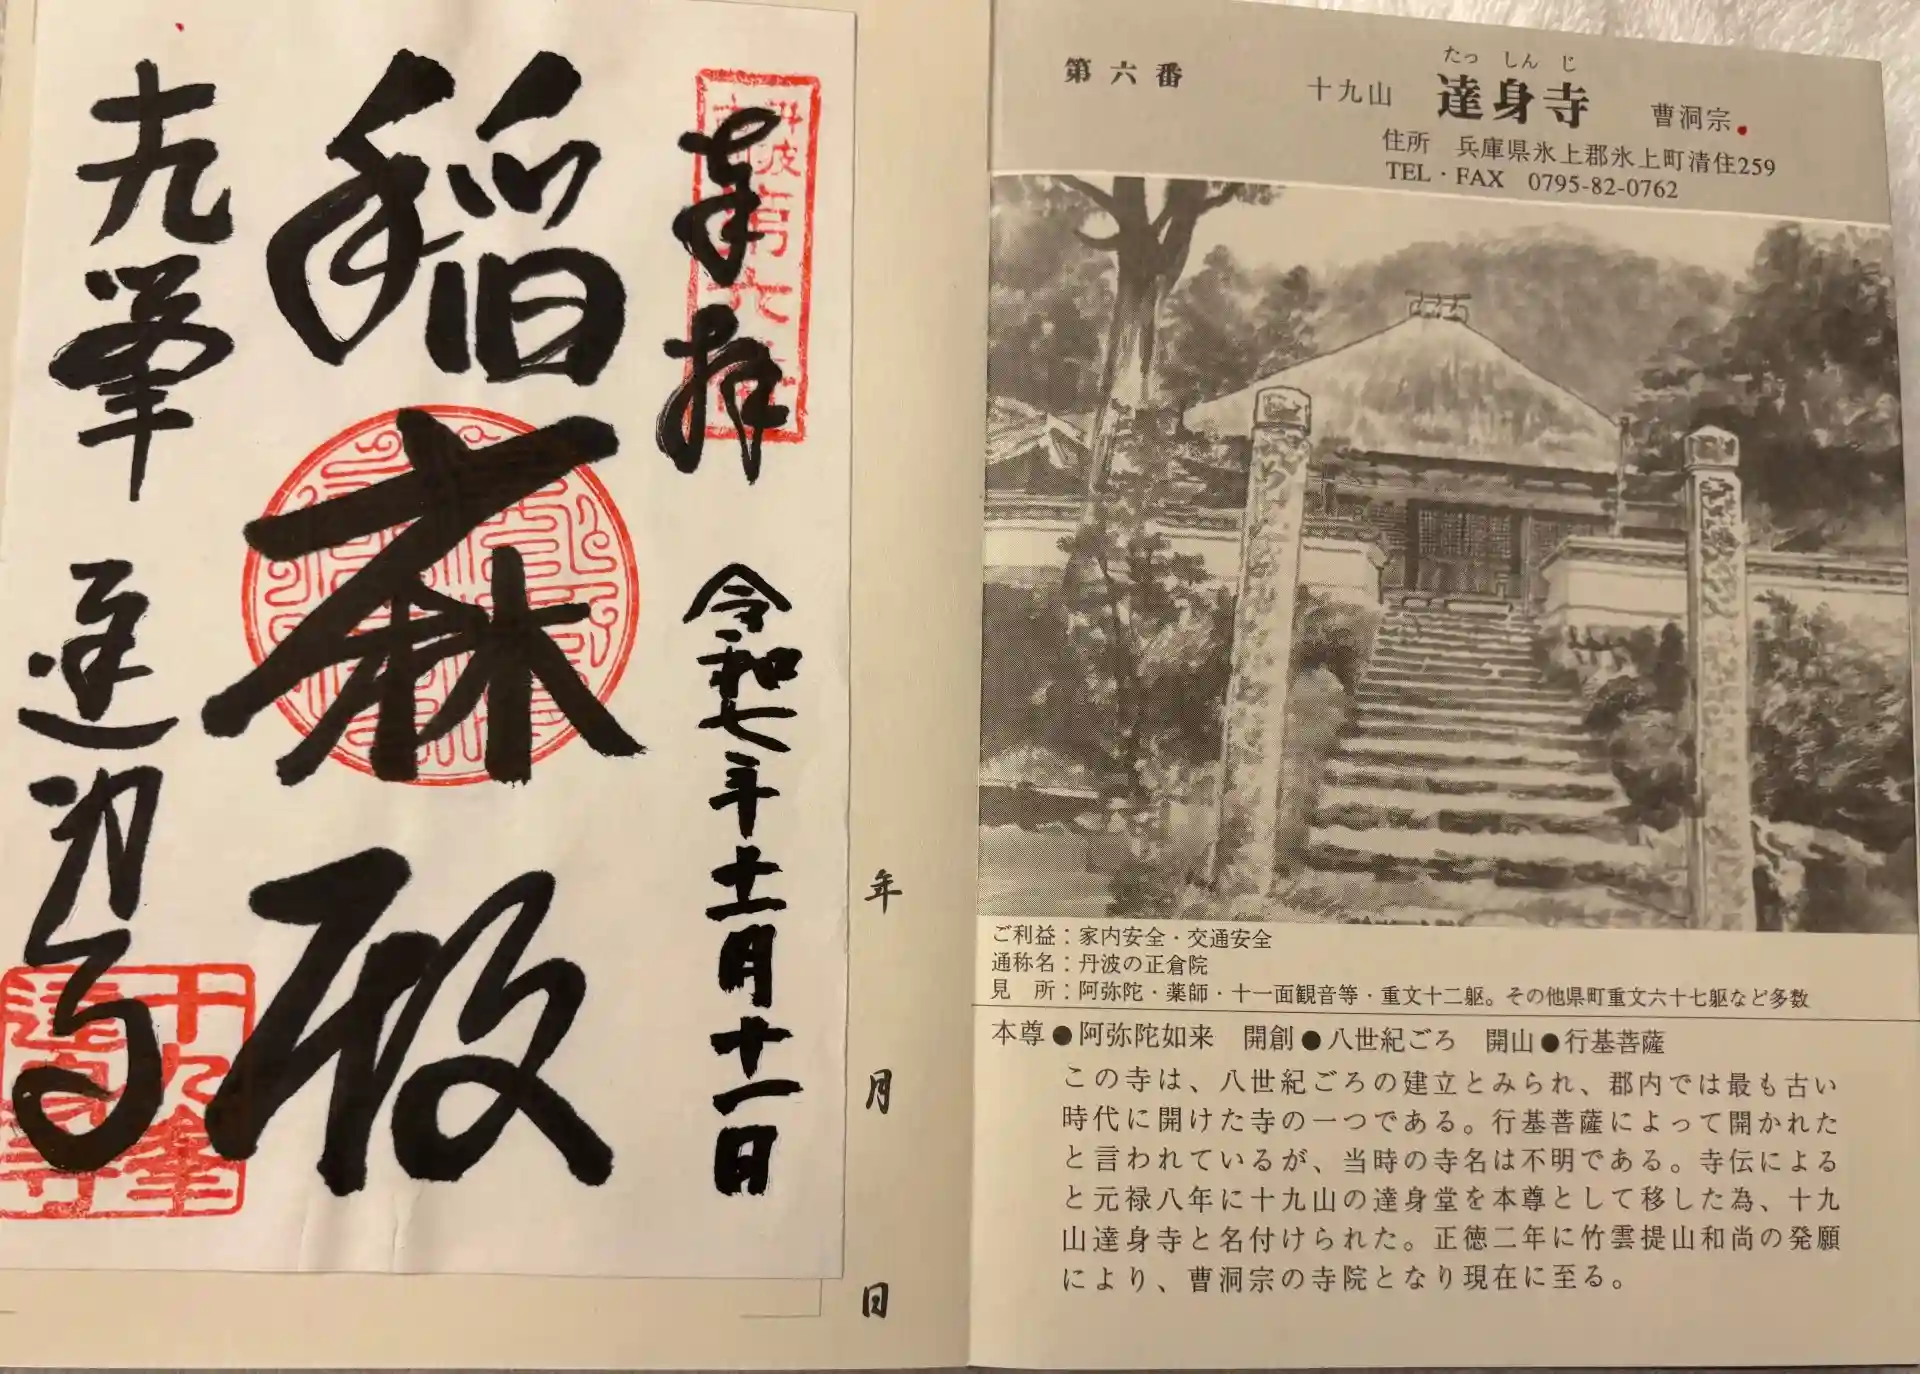 奉拝
令和七年十一月十一日
稲
麻
殿
十九峯
達身寺
丹波
第六
十九峯
達身寺
年
月
日
第六番
たっ しん じ
十九山 達身寺 曹洞宗
住所 兵庫県氷上郡氷上町清住259
TEL・FAX 0795-82-0762
ご利益:家内安全・交通安全
通称名:丹波の正倉院
見 所:阿弥陀・薬師・十一面観音等・重文十二躯。その他県町重文六十七躯など多数
本尊●阿弥陀如来 開創●八世紀ごろ 開山●行基菩薩
この寺は、八世紀ごろの建立とみられ、郡内では最も古い
時代に開けた寺の一つである。行基菩薩によって開かれた
と言われているが、当時の寺名は不明である。寺伝による
と元禄八年に十九山の達身堂を本尊として移した為、十九
山達身寺と名付けられた。正徳二年に竹雲提山和尚の発願
により、曹洞宗の寺院となり現在に至る。